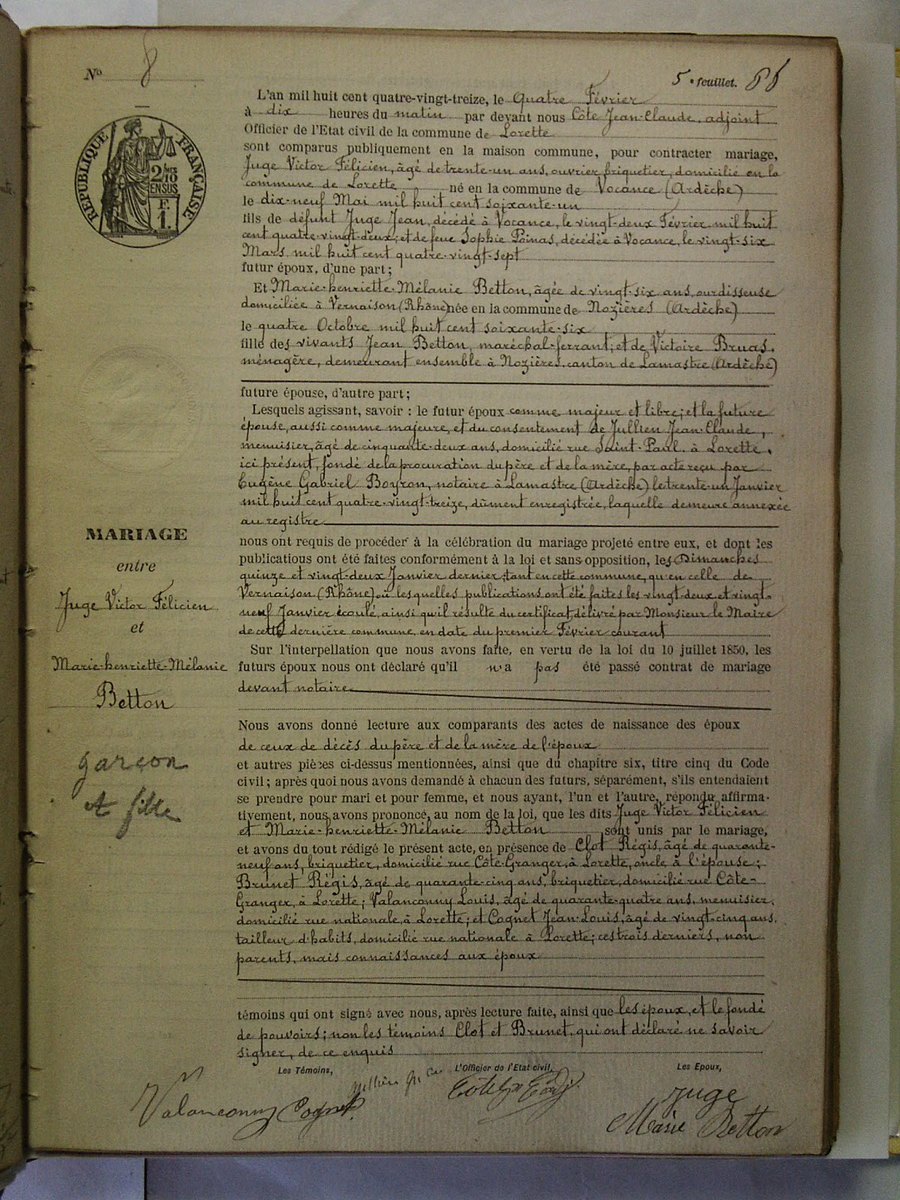 No 8
5e feuillet.
RÉPUBLIQUE FRANÇAISE
2/10
EN SUS
F.
1.
L'an mil huit cent quatre-vingt-treize, le Quatre Février
à dix heures du matin par devant nous Côte Jean-Claude, adjoint
Officier de l'Etat civil de la commune de Lorette
sont comparus publiquement en la maison commune, pour contracter mariage,
Juge Victor Félicien, âgé de trente-un ans, ouvrier briquetier, domicilié en la
commune de Lorette né en la commune de Vocance (Ardèche)
le dix-neuf Mai mil huit cent soixante-un
fils de défunt Juge Jean, décédé à Vocance, le vingt-deux Février mil huit
cent quatre-vingt-deux; et de feue Sophie Poinas, décédée à Vocance, le vingt-six
Mars mil huit cent quatre-vingt-sept
futur époux, d'une part;
Et Marie-henriette-Mélanie Betton, âgée de vingt-six ans, ourdisseuse
domiciliée à Vernaison (Rhône) née en la commune de Nozières (Ardèche)
le quatre Octobre mil huit cent soixante-six
fille des vivants Jean Betton, maréchal-ferrant; et de Victoire Bruas,
ménagère, demeurant ensemble à Nozières, canton de Lamastre (Ardèche)
future épouse, d'autre part;
Lesquels agissant, savoir : le futur époux comme majeur et libre; et la future
épouse, aussi comme majeure, et du consentement de Jullien Jean-Claude,
menuisier, âgé de cinquante-deux ans, domicilié rue Saint-Paul, à Lorette,
ici présent, fondé de la procuration du père et de la mère, par acte reçu par
Eugène Gabriel Boyron, notaire à Lamastre (Ardèche) le trente-un Janvier
mil huit cent quatre-vingt-treize, dûment enregistrée, laquelle demeure annexée
au registre
MARIAGE
entre
Juge Victor Félicien
et
Marie-henriette-Mélanie
Betton
garçon
et fille
nous ont requis de procéder à la célébration du mariage projeté entre eux, et dont les
publications ont été faites conformément à la loi et sans opposition, les Dimanches
quinze et vingt-deux Janvier dernier; tant en cette commune, qu'en celle de
Vernaison (Rhône), où lesquelles publications ont été faites les vingt-deux et vingt-
neuf Janvier écoulé, ainsi qu'il résulte du certificat, délivré par Monsieur le Maire
de cette dernière commune, en date du premier Février courant
Sur l'interpellation que nous avons faite, en vertu de la loi du 10 juillet 1850, les
futurs époux nous ont déclaré qu'il n'a pas été passé contrat de mariage
devant notaire
Nous avons donné lecture aux comparants des actes de naissance des époux
de ceux de décès du père et de la mère de l'époux
et autres pièces ci-dessus mentionnées, ainsi que du chapitre six, titre cinq du Code
civil; après quoi nous avons demandé à chacun des futurs, séparément, s'ils entendaient
se prendre pour mari et pour femme, et nous ayant, l'un et l'autre, répondu affirma-
tivement, nous avons prononcé, au nom de la loi, que les dits Juge Victor Félicien
et Marie-henriette-Mélanie Betton sont unis par le mariage,
et avons du tout rédigé le présent acte, en présence de Clot Régis, âgé de quarante-
neuf ans, briquetier, domicilié rue Côte-Granger, à Lorette, oncle à l'épouse;
Brunet Régis, âgé de quarante-cinq ans, briquetier, domicilié rue Côte-
Granger, à Lorette; Valanconny Louis, âgé de quarante-quatre ans, menuisier,
domicilié rue nationale, à Lorette; et Cognet Jean-Louis, âgé de vingt-cinq ans,
tailleur d'habits, domicilié rue nationale à Lorette; ces trois derniers, non
parents, mais connaissances aux époux
témoins qui ont signé avec nous, après lecture faite, ainsi que les époux, et le fondé
de pouvoirs; non les témoins Clot et Brunet, qui ont déclaré ne savoir
signer, de ce enquis
Les Témoins,
L'Officier de l'Etat civil,
Les Epoux,
Valanconny Cognet
Juge
Marie Betton